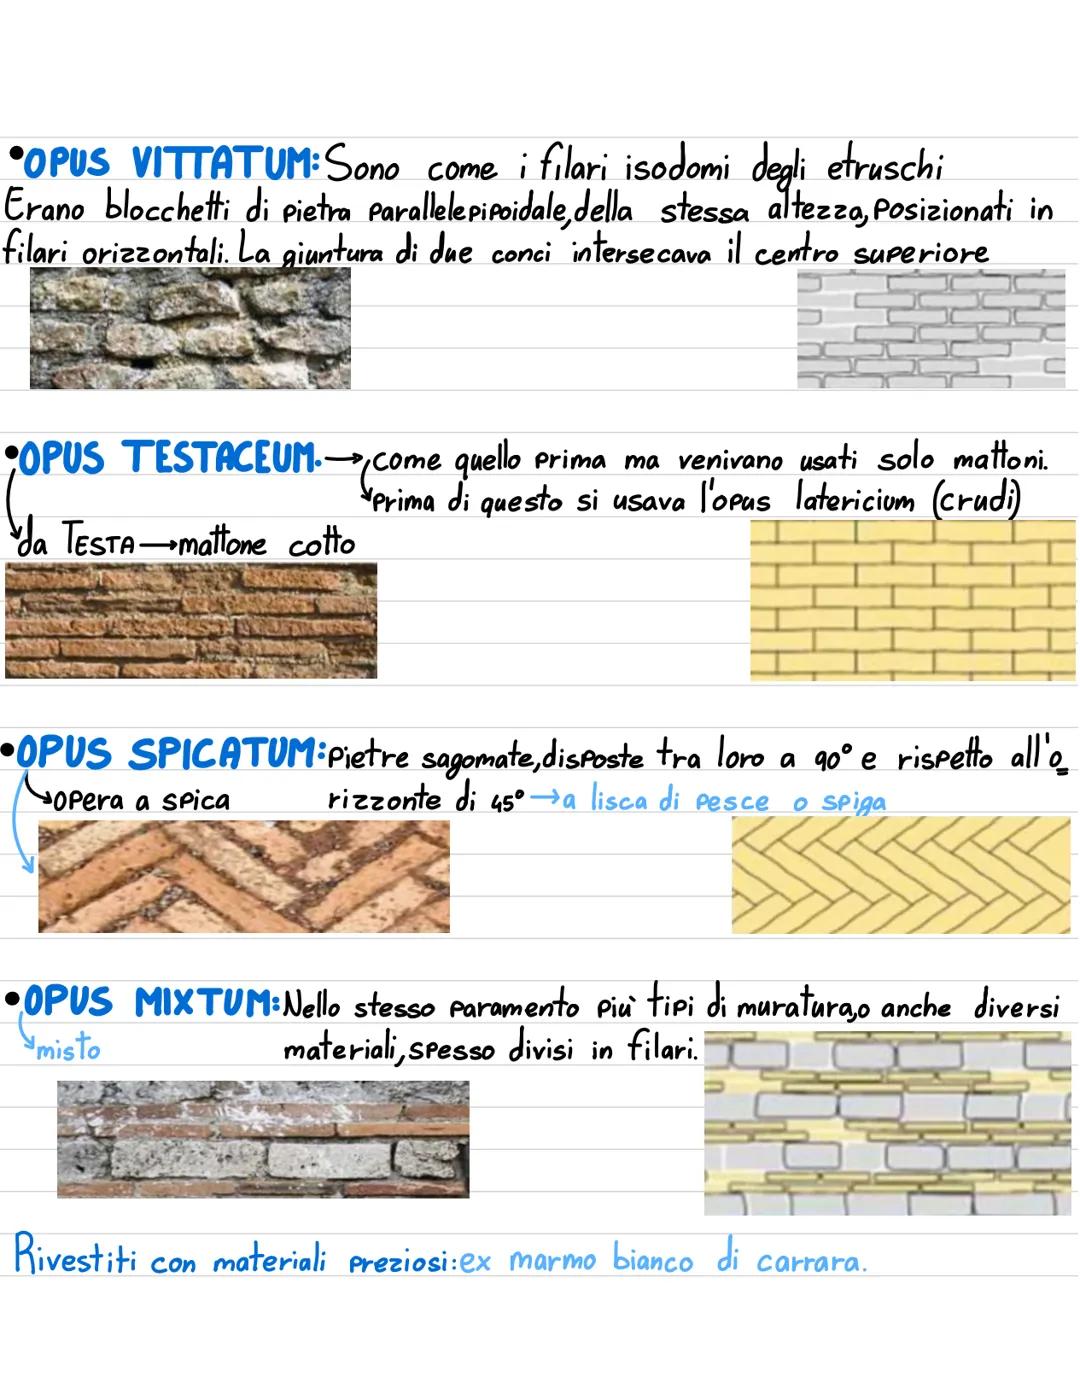 •OPUS VITTATUM: Sono come i filari isodomi degli etruschi
Erano blocchetti di pietra parallelepipoidale, della stessa altezza, posizionati in
filari orizzontali. La giuntura di due conci intersecava il centro superiore
•OPUS TESTACEUM. → come quello prima ma venivano usati solo mattoni.
prima di questo si usava l'opus latericium (crudi)
da TESTA → mattone cotto
•OPUS SPICATUM: pietre sagomate, disposte tra loro a 90° e rispetto all'o
opera a spica rizzonte di 45° → a lisca di pesce o spiga
•OPUS MIXTUM: Nello stesso paramento più tipi di muratura, o anche diversi
misto materiali, spesso divisi in filari.
Rivestiti con materiali preziosi: ex marmo bianco di carrara.